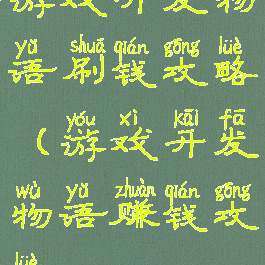 游戏开发物
yǔ shuā qián gōng lüè
语刷钱攻略
yóu xì kāi fā
（游戏开发
wù yǔ zhuàn qián gōng
物语赚钱攻
lüè